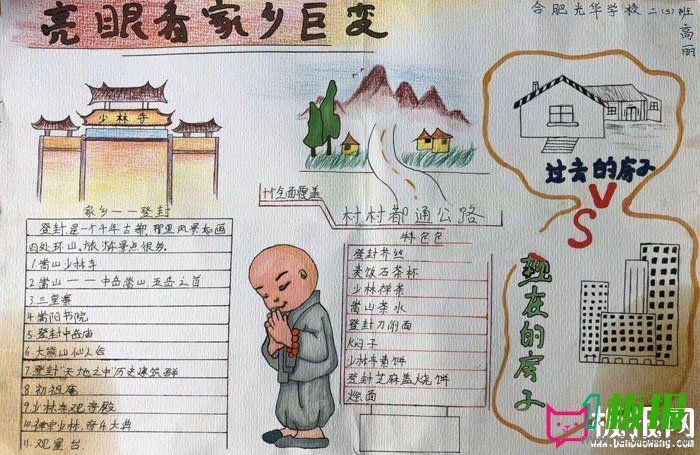 亮眼看家乡巨变
合肥光华学校二(5)班
高丽
少林寺
家乡——登封
登封是一个千年古都,那里风景如画
四处环山。旅游景点很多。
1.嵩山少林寺
2.嵩山——中岳嵩山,五岳之首
3.三皇寨
4.嵩阳书院
5.登封中岳庙
6.大熊山仙人谷
7.登封"天地之中"历史建筑群
8.初祖庵
9.少林寺观音殿
10.禅宗少林.音乐大典
11.观星台.
全面覆盖
村村都通公路
特色包
登封芥丝
麦饭石茶杯
少林禅茶
嵩山茶水
登封刀削面
焖子
少林寺素饼
登封芝麻盖烧饼
烩面
过去的房子
VS
现在的房子
1板报
板报网
www.banbaowang.com